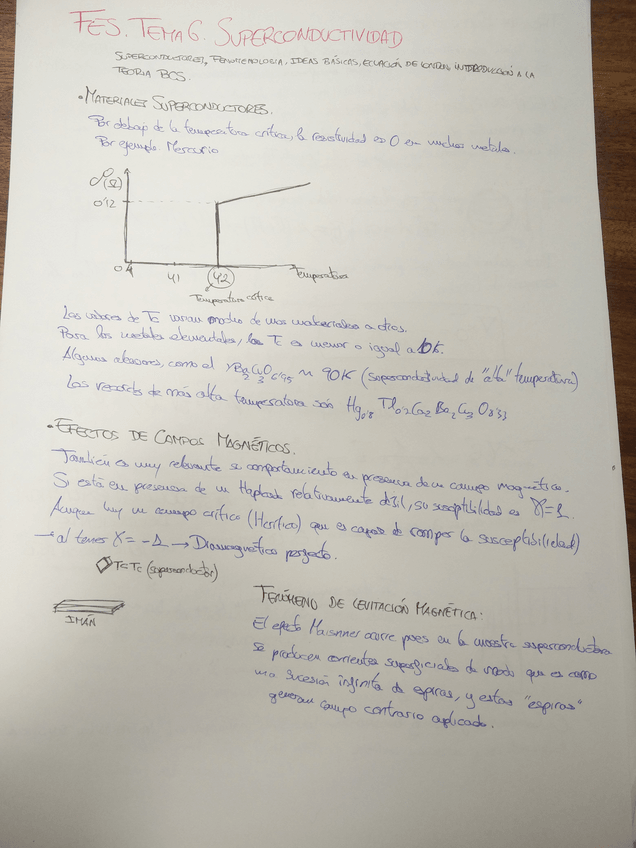 FES. TEMA 6. SUPERCONDUCTIVIDAD
SUPERCONDUCTORES, FENOMENOLOGIA, IDEAS BÁSICAS, ECUACIÓN DE LONDON, INTRODUCCIÓN A LA
TEORIA BCS.
• MATERIALES SUPERCONDUCTORES.
Por debajo de la temperatura crítica, la resistividad es 0 en muchos metales.
Por ejemplo Mercurio
ρ(Ω)
0'12
0
4
4'1
4'2
Temperatura
Temperatura crítica
Los valores de Tc varian mucho de unos materiales a otros.
Para los metales elementales, la Tc es menor o igual a 10K.
Algunas aleaciones, como el YBa2Cu3O6'95 ~ 90K (superconductividad de "alta" temperatura)
Los records de más alta temperatura son Hg0'8 Tl0'2 Ca2 Ba2 Cu3 O8'33
• EFECTOS DE CAMPOS MAGNÉTICOS.
También es muy relevante su comportamiento en presencia de un campo magnético.
Si está en presencia de un Haplicado relativamente débil, su susceptibilidad es χ=-1.
Aunque hay un campo crítico (Hcrítico) que es capaz de romper la susceptibilidad)
→ al tener χ = -1 → Diamagnético perfecto.
T<Tc (superconductor)
IMÁN
FENÓMENO DE LEVITACIÓN MAGNÉTICA:
El efecto Maisnner ocurre pues en la muestra superconductora
se producen corrientes superficiales de modo que es como
una sucesión infinita de espiras, y estas "espiras"
generan campo contrario aplicado.